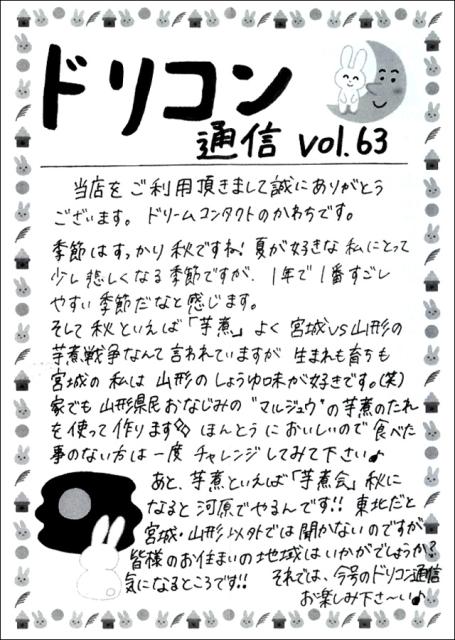 ドリコン
通信 vol.63
当店をご利用頂きまして誠にありがとう
ございます。ドリームコンタクトのかわちです。
季節はすっかり秋ですね！夏が好きな私にとって
少し悲しくなる季節ですが、1年で1番すごし
やすい季節だなと感じます。
そして秋といえば「芋煮」よく宮城VS山形の
芋煮戦争なんて言われていますが生まれも育ちも
宮城の私は山形のしょうゆ味が好きです。(笑)
家でも山形県民おなじみの"マルジュウ"の芋煮のたれ
を使って作ります ほんとうにおいしいので食べた
事のない方は一度チャレンジしてみて下さい♪
あと、芋煮といえば「芋煮会」秋に
なると河原でやるんです!! 東北だと
宮城・山形以外では聞かないのですが
皆様のお住まいの地域はいかがでしょうか？
気になるところです!! それでは、今号のドリコン通信
お楽しみ下さ〜い♪